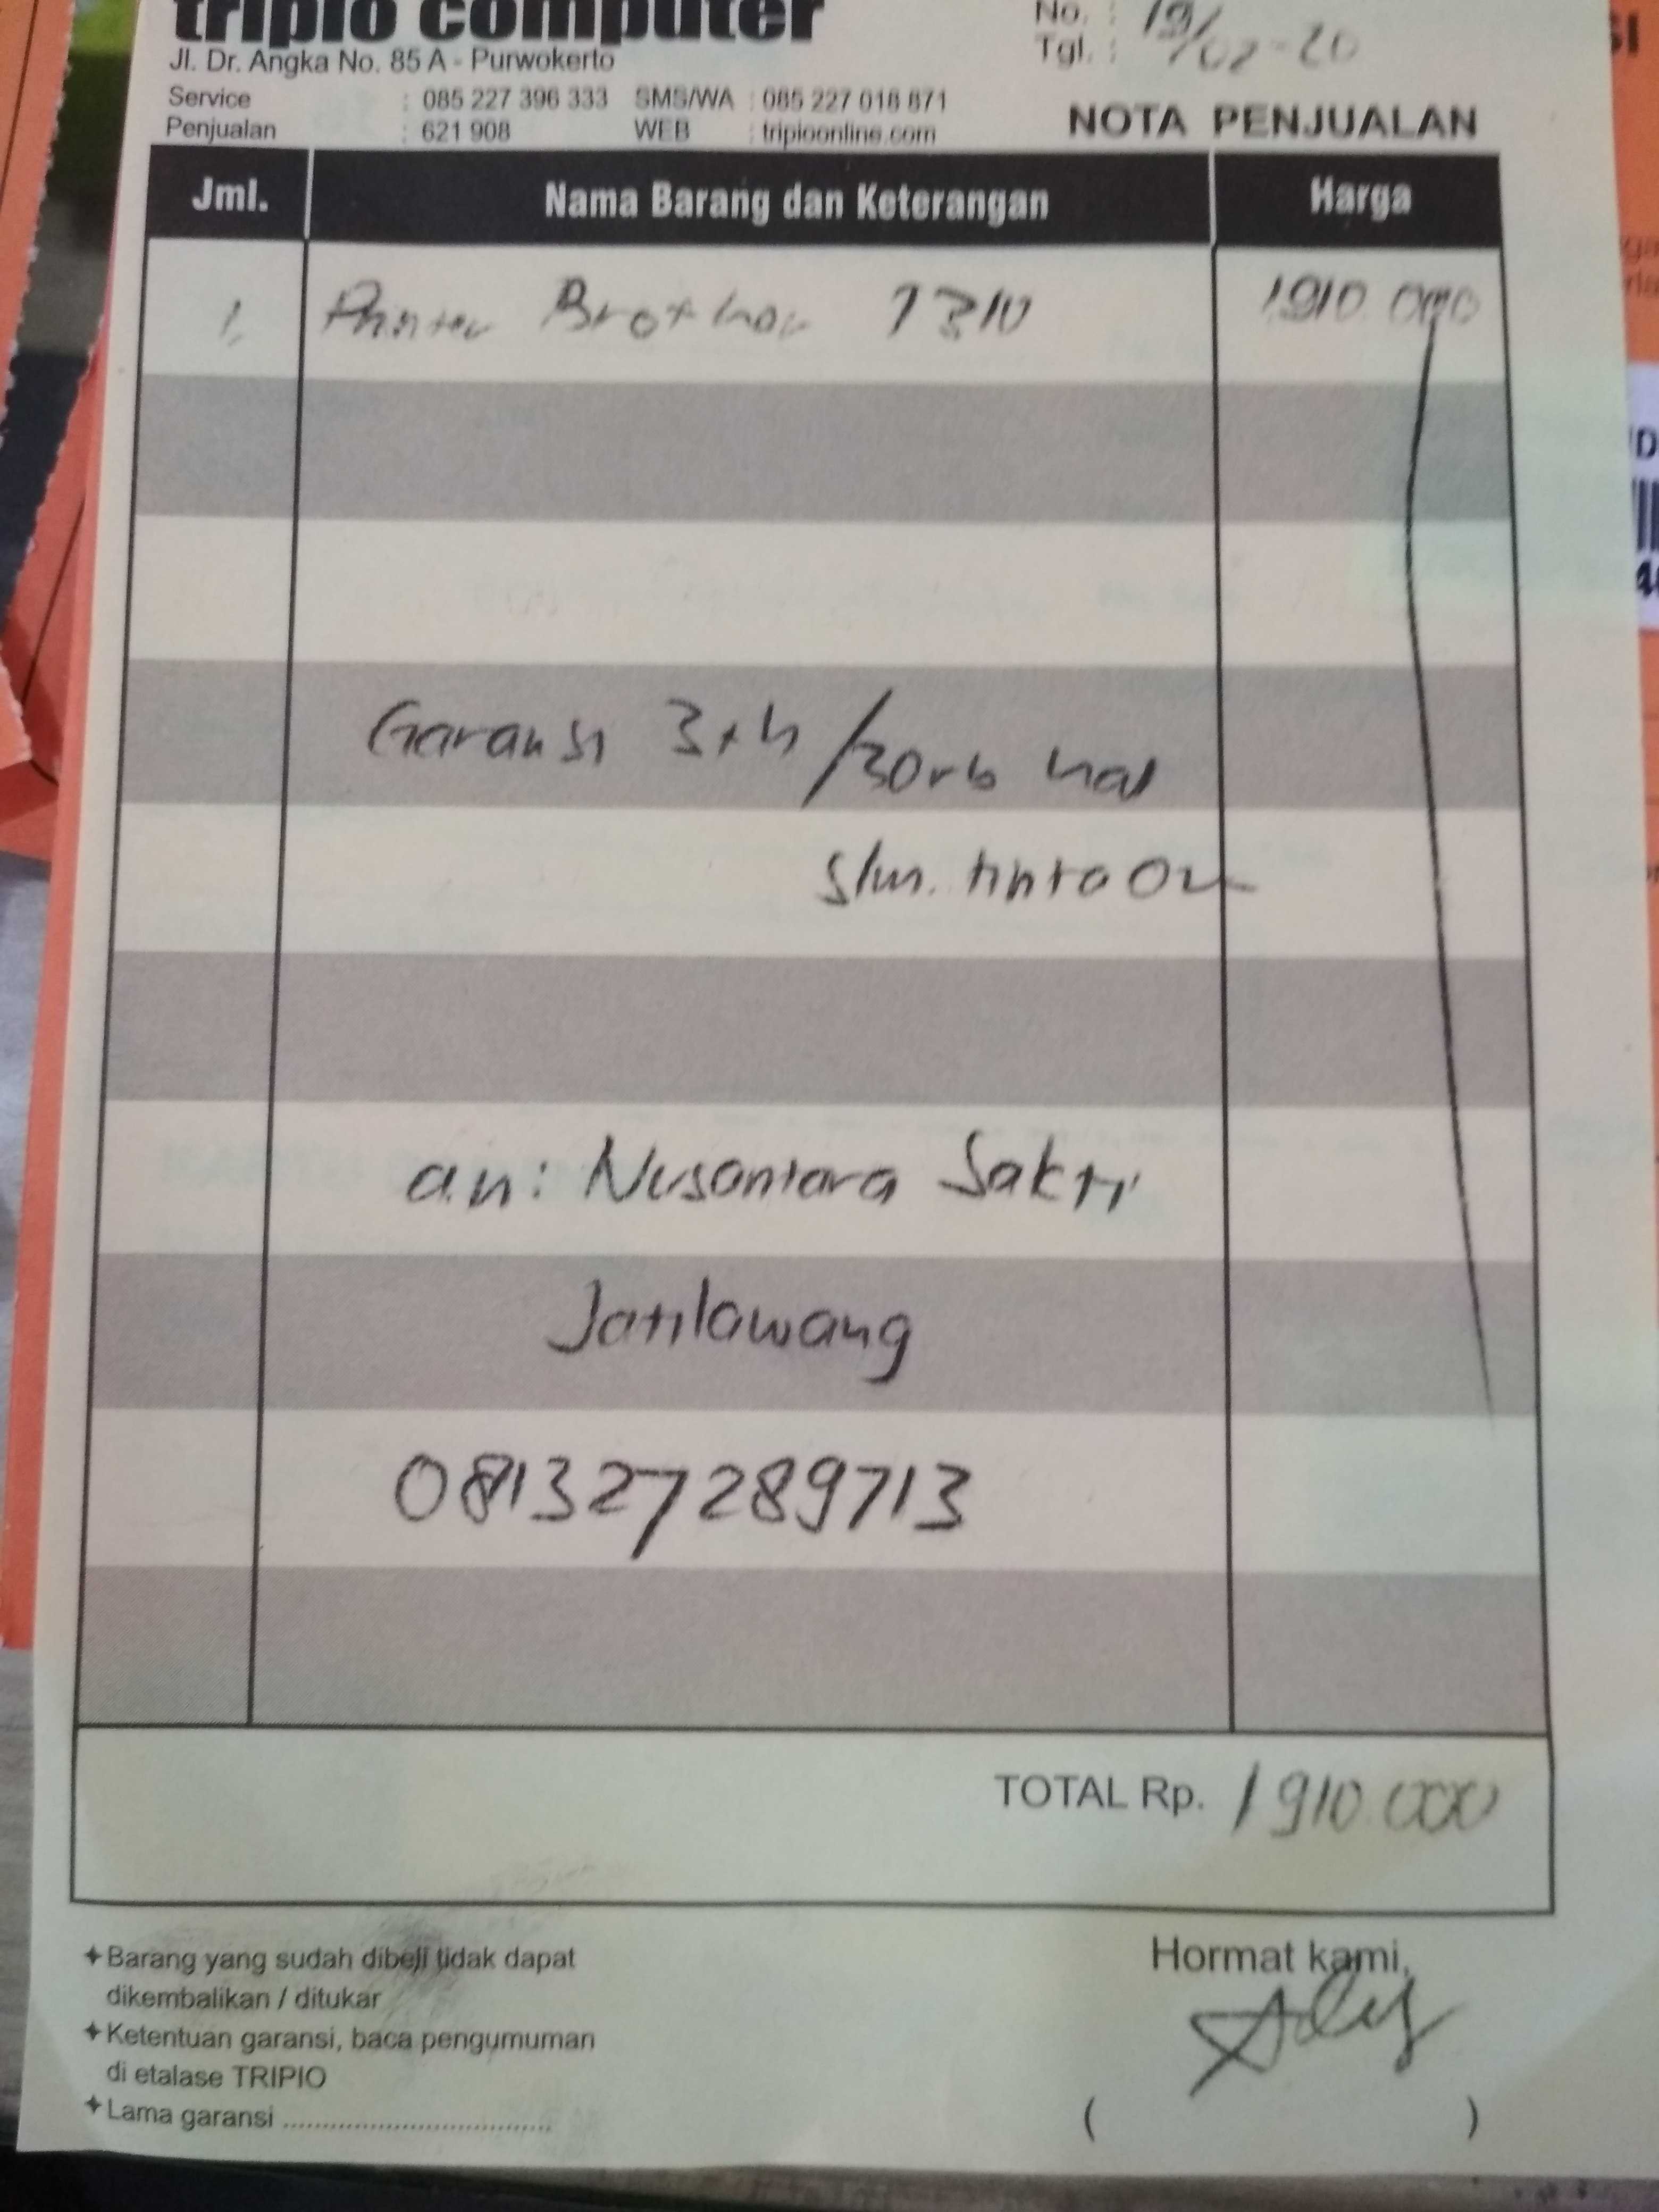 tripio computer
Jl. Dr. Angka No. 85 A - Purwokerto
Service : 085 227 396 333 SMS/WA : 085 227 018 871
Penjualan : 621 908 WEB : tripioonline.com
No. :
Tgl. : 19/02-20
NOTA PENJUALAN
Jml. Nama Barang dan Keterangan Harga
1. Printer Brother T310 1.910.000
Garansi 3th/30rb hal
slm. tinta Ori
a.n: Nusantara Sakti
Jatilawang
081327289713
TOTAL Rp. 1.910.000
Barang yang sudah dibeli tidak dapat
dikembalikan / ditukar
Ketentuan garansi, baca pengumuman
di etalase TRIPIO
Lama garansi ..................................
Hormat kami,
( )